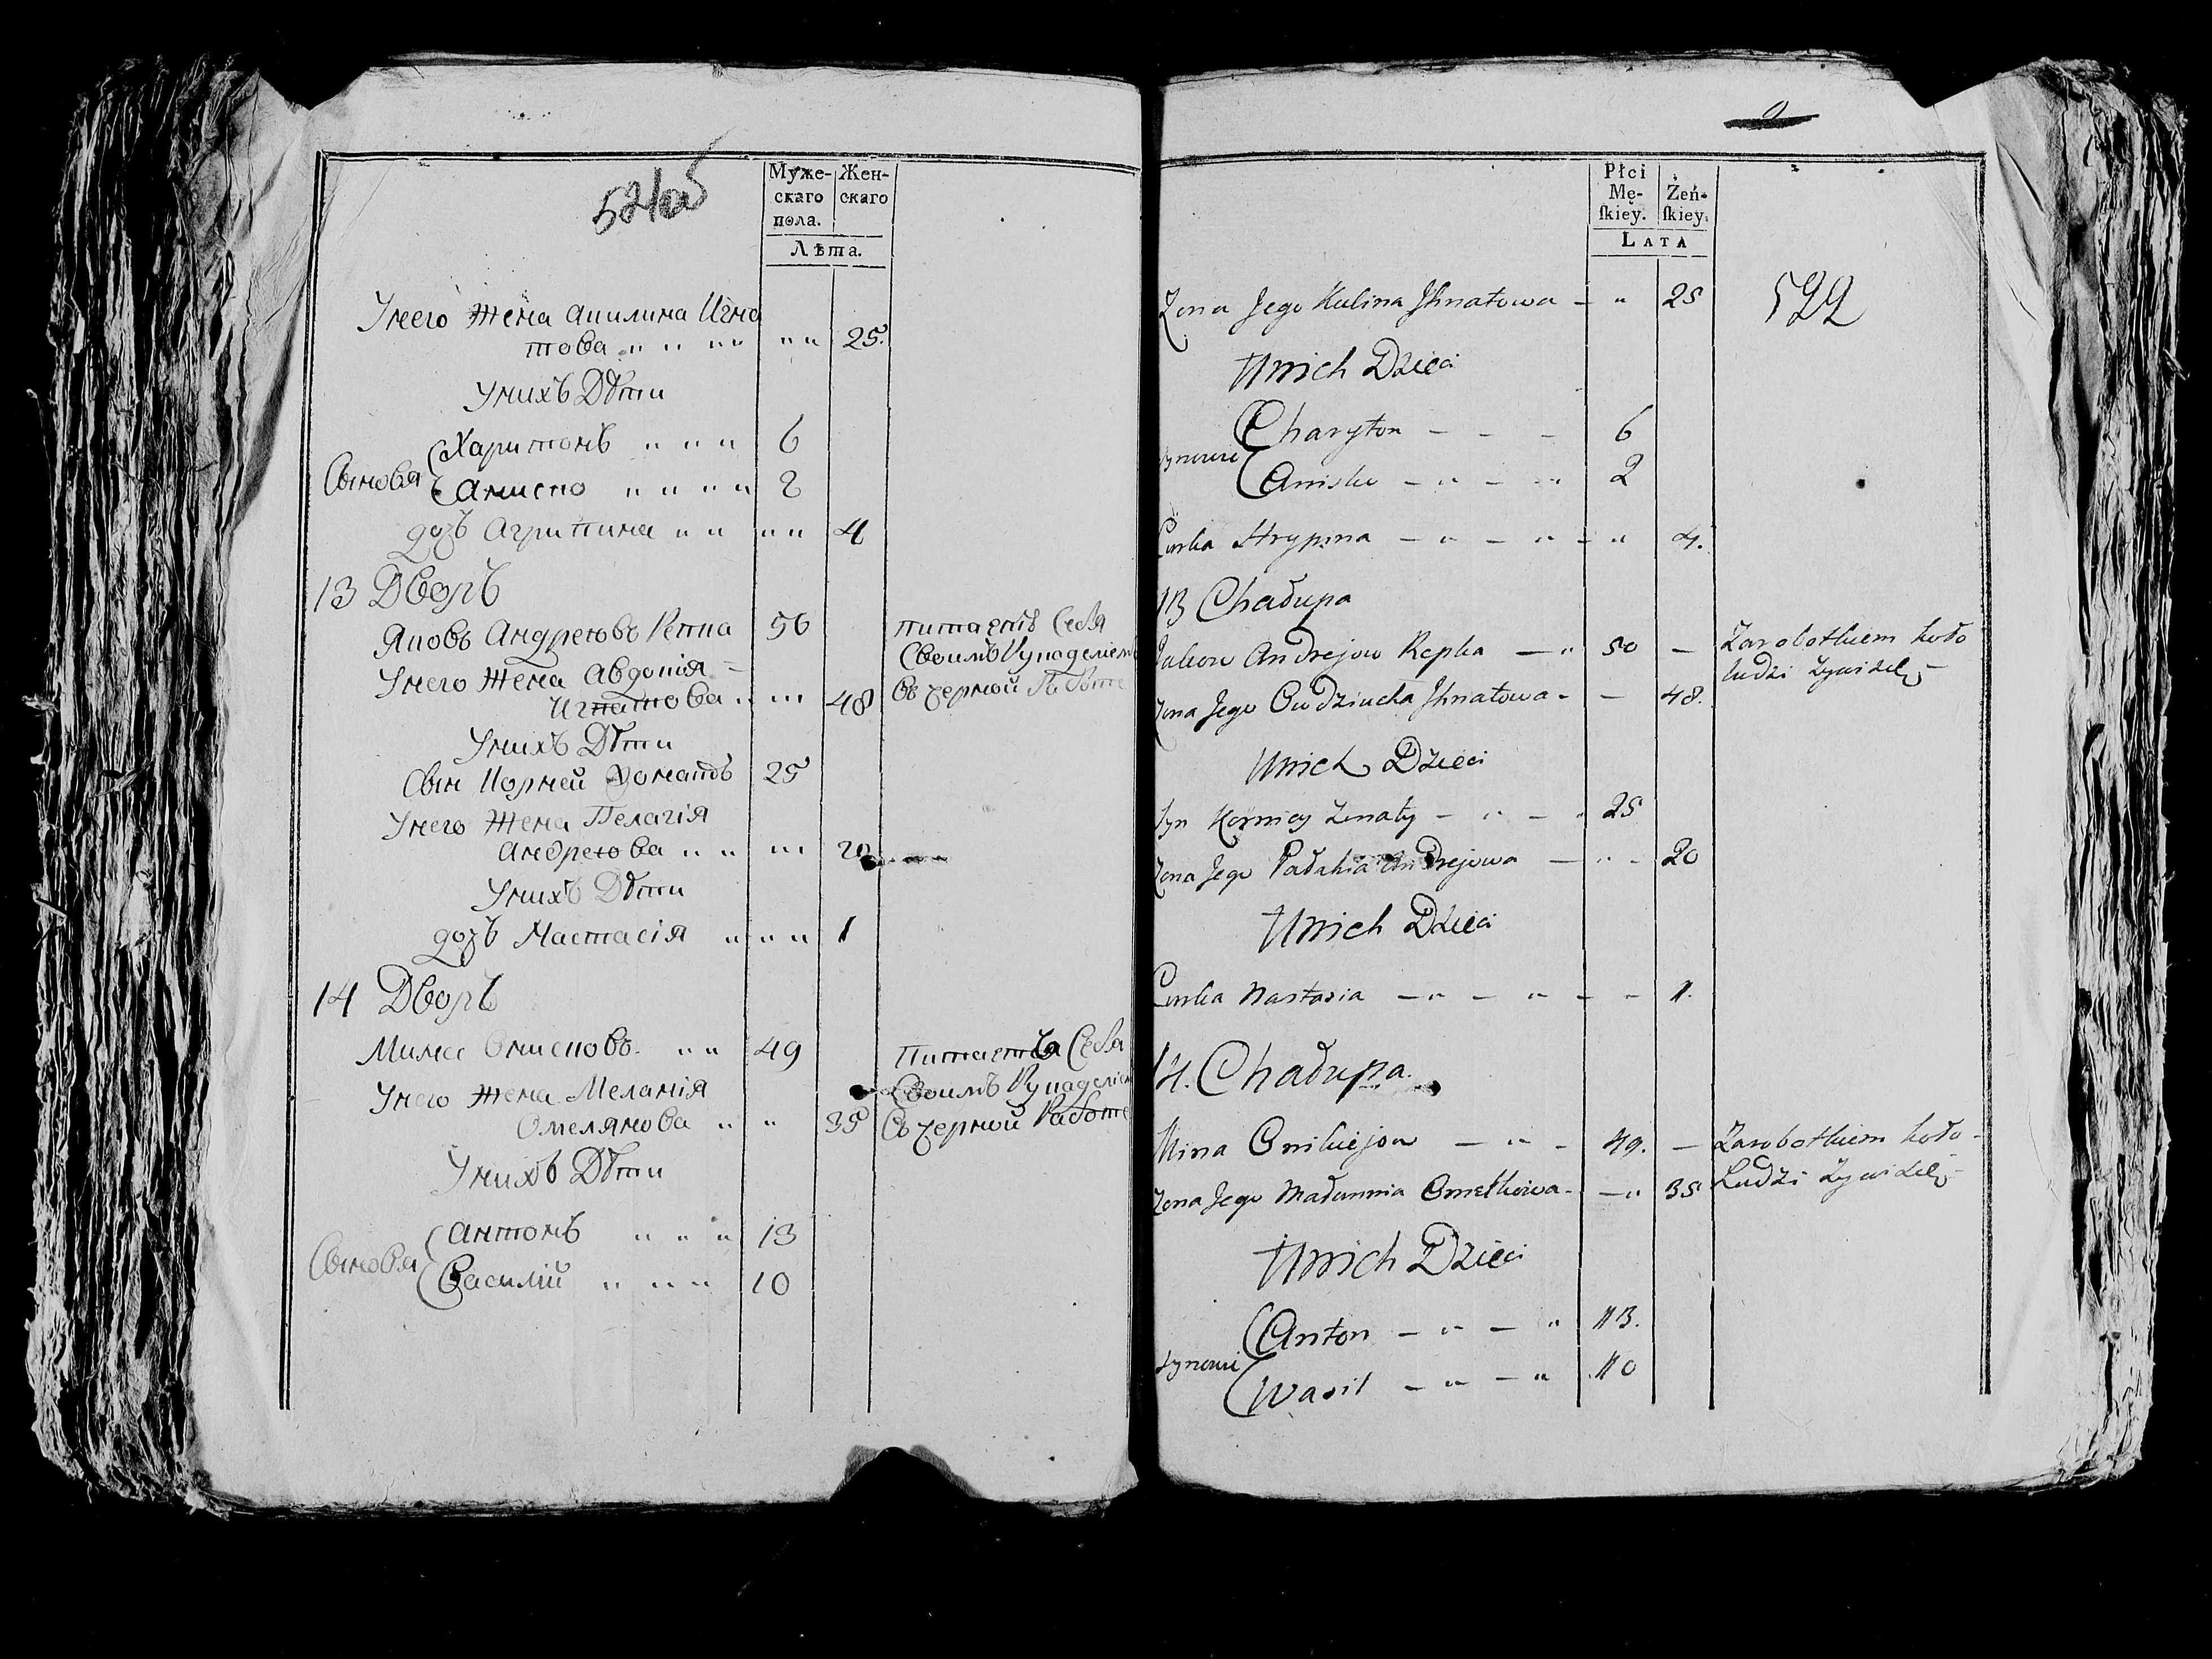 521об
Муже-
скаго
пола.
Жен-
скаго
Лѣта.
Унего жена Акилина Игна
това " " " " " 25.
Унихъ Дѣти
Сыновья
Харитонъ " " " 6
Аниско " " " " 2
дочь Агрипина " " " " 4
13 Дворъ
Яковъ Андреювъ Репка 50
питаетъ Себя
Своимъ Рукаделіемъ
Въ черной Работе
Унего жена Авдотія –
Игнатова " " 48
Унихъ Дѣти
Сын Корней Жонатъ 25
Унего жена Пелагія
Андреюва " " " 20
Унихъ Дѣти
дочъ Настасія " " " 1
14 Дворъ
Мина Онисковъ " " 49
Питаетъ Себя
Своимъ Рукаделіем
Въ черной Работе
Унего жена Меланія
Омелянова " " 35
Унихъ Дѣти
Сыновья
Антонъ " " " 13
Василій " " " 10
Płci
Mę-
ſkiey.
Żeń-
ſkiey.
LATA
522
Zona Jego Kulina Jhnatowa – " 25
Unich Dzieci
Synowie
Charyton – – – 6
Anisko – " – " 2
Curka Hrypina – " – " – " 4.
13 Chałupa
Jakow Andrejow Repka – " 50 –
Zarobotkiem koło
ludzi żywi się –
Zona Jego Owdziucha Jhnatowa – – 48.
Unich Dzieci
Syn Korniey Zonaty – " – " 25
Zona Jego Pałahia Andrejowa – " – 20
Unich Dzieci
Curka Nastasia – " – " – – 1.
14. Chałupa.
Mina Oniskiejow – " – 49. –
Zarobotkiem koło –
Ludzi żywi się –
Zona Jego Małannia Omelkowa – – " 35
Unich Dzieci
Synowie
Anton – " – " 13.
Wasil – " – " 10